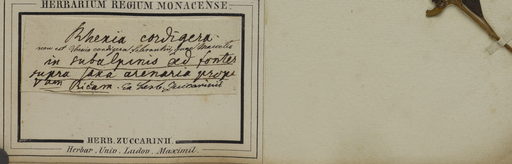 HERBARIUM REGIUM MONACENSE
Rhexia cordigera.
non est Rhexia cordigera
in subalpinis ad fontes
supra saxa arenaria prope
Ex herb. Zuccarinii
HERB. ZUCCARINII.
Herbar. Univ. Ludov. Maximil.